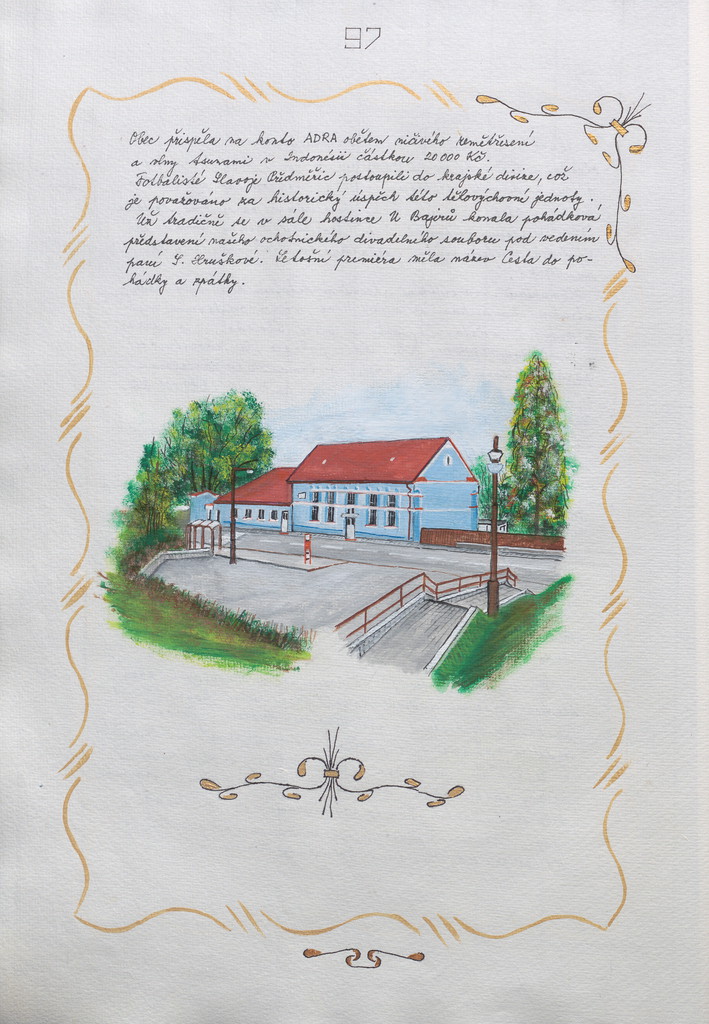 97
Obec přispěla na konto ADRA obětem ničivého zemětřesení
a vlny tsunami v Indonésii částkou 20 000 Kč.
Fotbalisté Slavoje Předměřic postoupili do krajské divize, což
je považováno za historický úspěch této tělovýchovné jednoty.
Už tradičně se v sále hostince U Bajerů konala pohádková
představení našeho ochotnického divadelního souboru pod vedením
paní S. Hruškové. Letošní premiéra měla název Cesta do po-
hádky a zpátky.